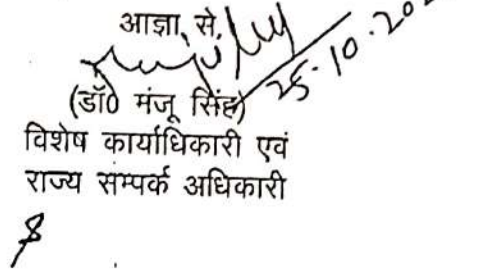 आज्ञा से,
25.10.20
(डॉ0 मंजू सिंह)
विशेष कार्याधिकारी एवं
राज्य सम्पर्क अधिकारी